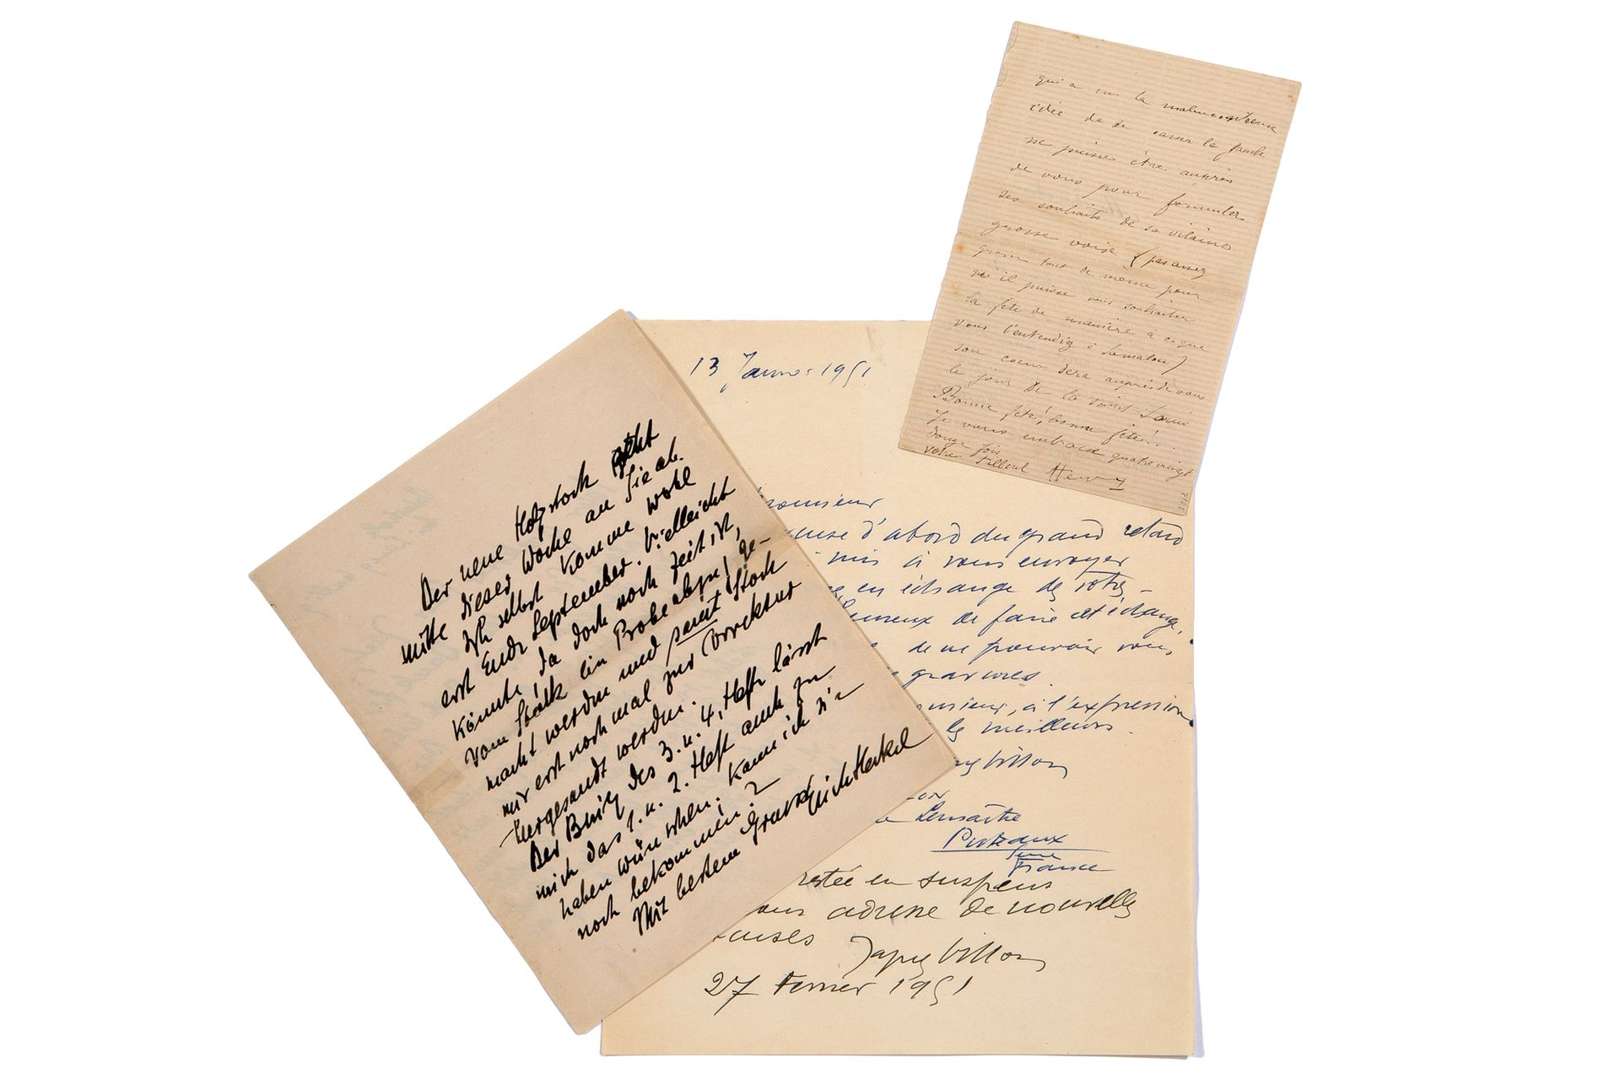 Der neue Holzstock geht
Mitte dieser Woche an Sie ab.
Ich selbst komme wohl
erst Ende September. Vielleicht
könnte, da doch noch Zeit ist,
vom Stock ein Probeabzug ge-
macht werden und samt Stock
mir erst noch mal zur Correktur
hergesandt werden.
Der Brief des 3. u. 4. Heft lässt
mich das 1. u. 2. Heft auch zu
haben wünschen. Kann ich sie
noch bekommen?
Mit bestem Gruss Erich Heckel
13 Janvier 1951
Monsieur,
d'abord du grand retard
mis à vous envoyer
en échange de votre
heureux de faire cet échange,
de ne pouvoir vous
gravures.
monsieur, à l'expression
les meilleurs.
Jacques Villon
Lemaître
Puteaux
Seine
France
restée en suspens
sans adresse de nouvelles
Jacques Villon
27 Fevrier 1951
qui a eu la malencontreuse
idée de se casser la
ne puisse être auprès
de vous pour formuler
ses souhaits de sa vilaine
grosse voix (pas assez
grosse tout de même pour
qu'il puisse vous souhaiter
la fête de manière à ce que
vous l'entendiez à
son coeur sera auprès de vous
le jour de la
Bonne fête, bonne fête!
Je vous embrasse quatre vingt
douze fois
votre filleul Henry